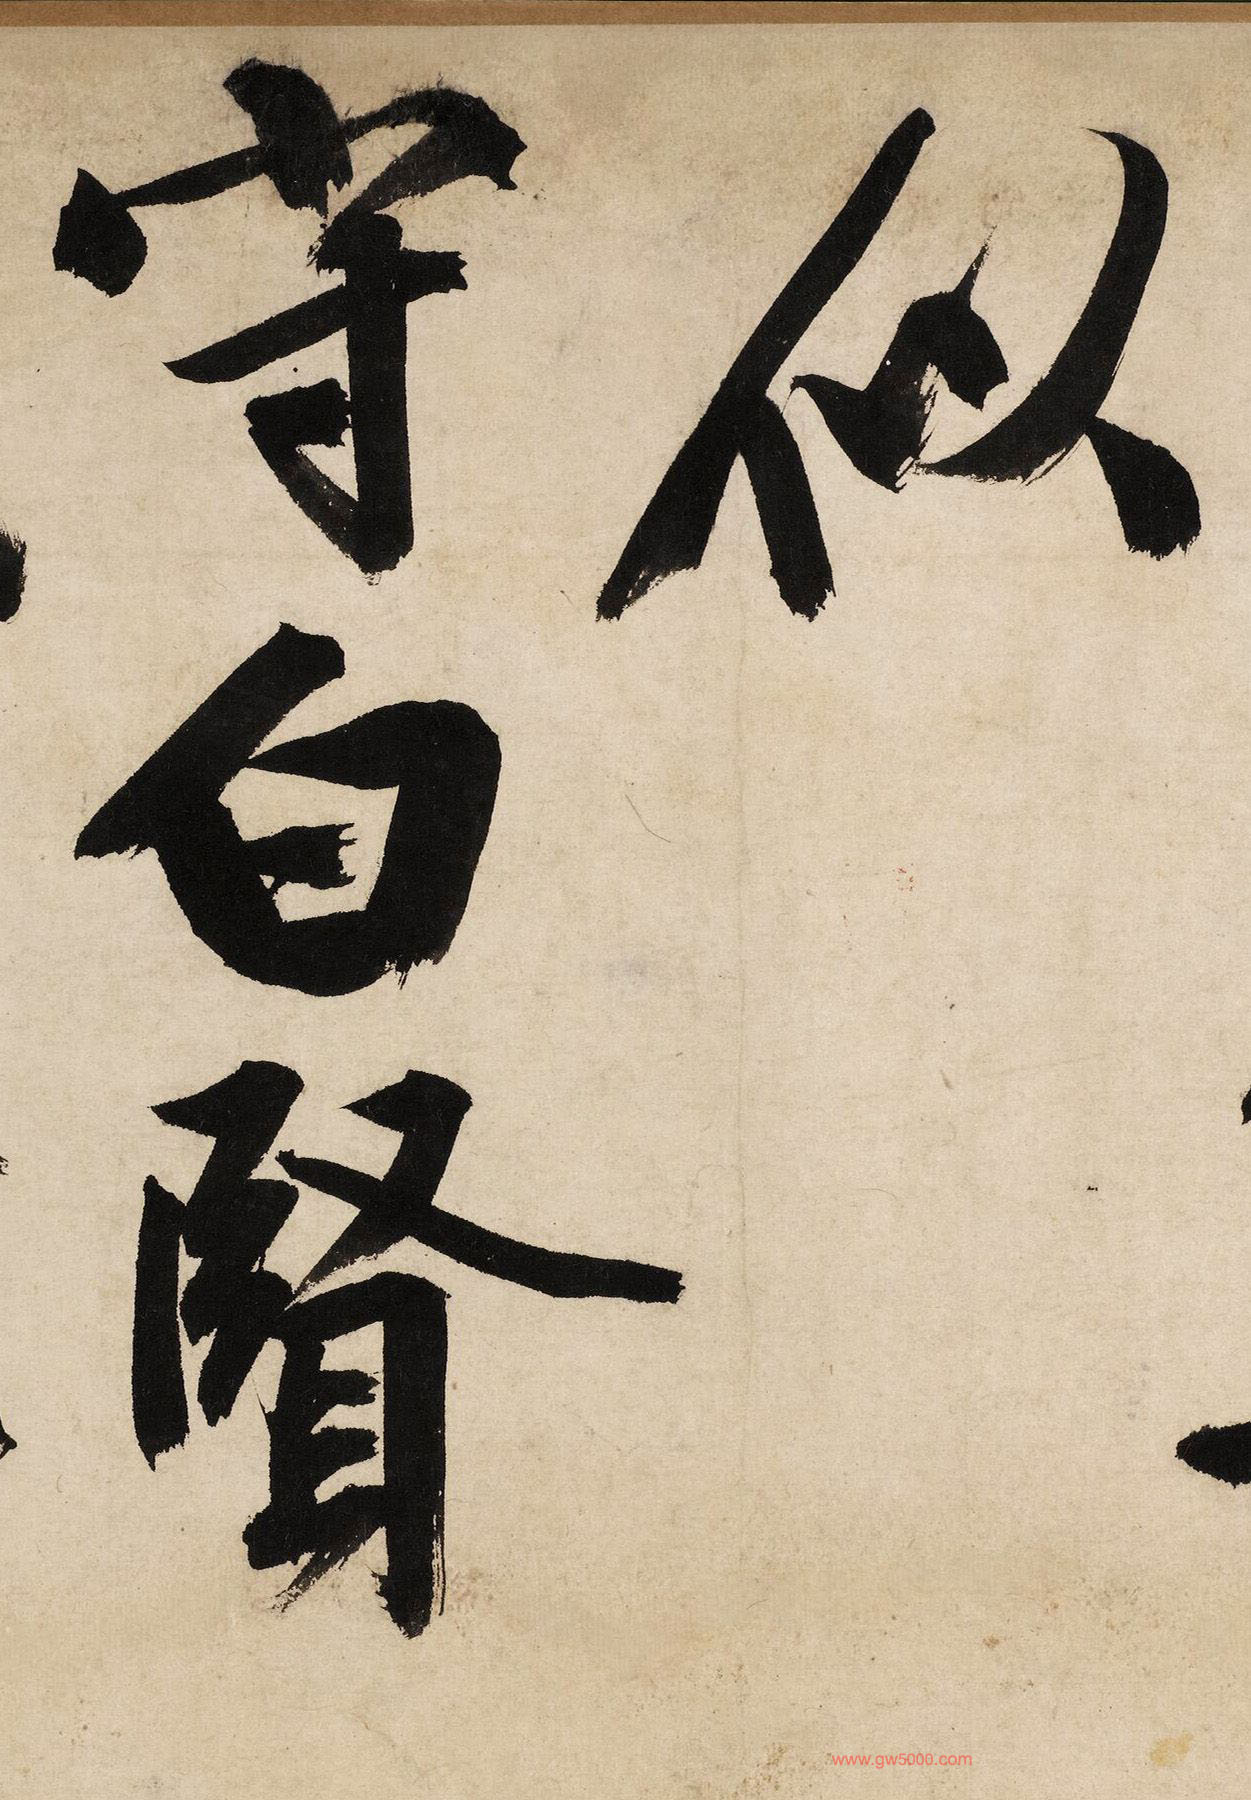 似
守白賢
www.gw5000.com